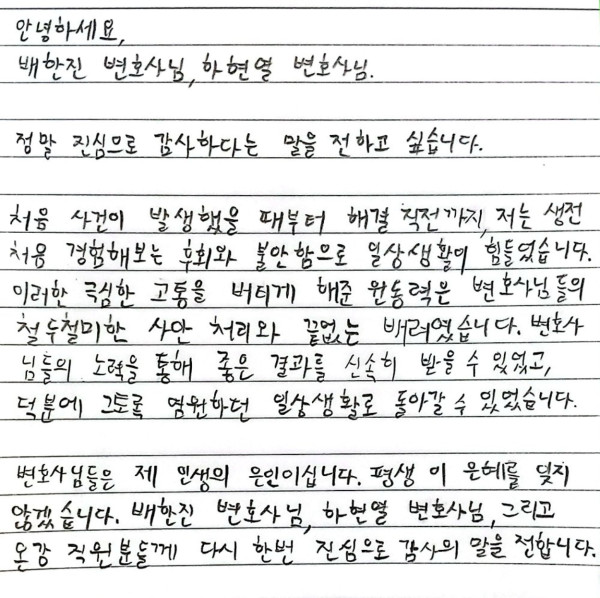 안녕하세요,
배한진 변호사님, 하현열 변호사님.
정말 진심으로 감사하다는 말을 전하고 싶습니다.
처음 사건이 발생했을 때부터 해결 직전까지, 저는 생전
처음 경험해보는 후회와 불안함으로 일상생활이 힘들었습니다.
이러한 극심한 고통을 버티게 해준 원동력은 변호사님들의
철두철미한 사안 처리와 끝없는 배려였습니다. 변호사
님들의 노력을 통해 좋은 결과를 신속히 받을 수 있었고,
덕분에 그토록 염원하던 일상생활로 돌아갈 수 있었습니다.
변호사님들은 제 인생의 은인이십니다. 평생 이 은혜를 잊지
않겠습니다. 배한진 변호사님, 하현열 변호사님, 그리고
온강 직원분들께 다시 한번 진심으로 감사의 말을 전합니다.